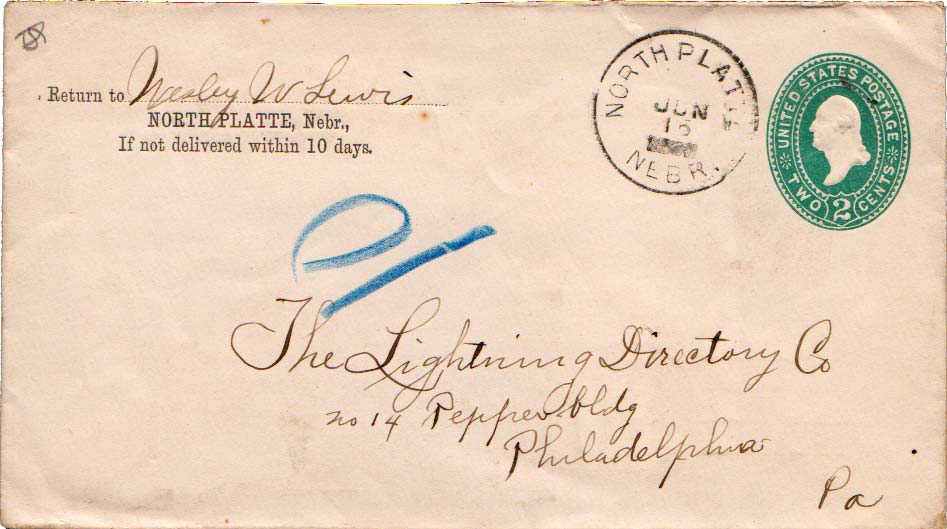 Return to Wesley W Lewis
NORTH PLATTE, Nebr.,
If not delivered within 10 days.
NORTH PLATTE
JUN
15
NEBR.
UNITED STATES POSTAGE
TWO 2 CENTS
The Lightning Directory Co
no 14 Pepper bldg
Philadelphia
Pa